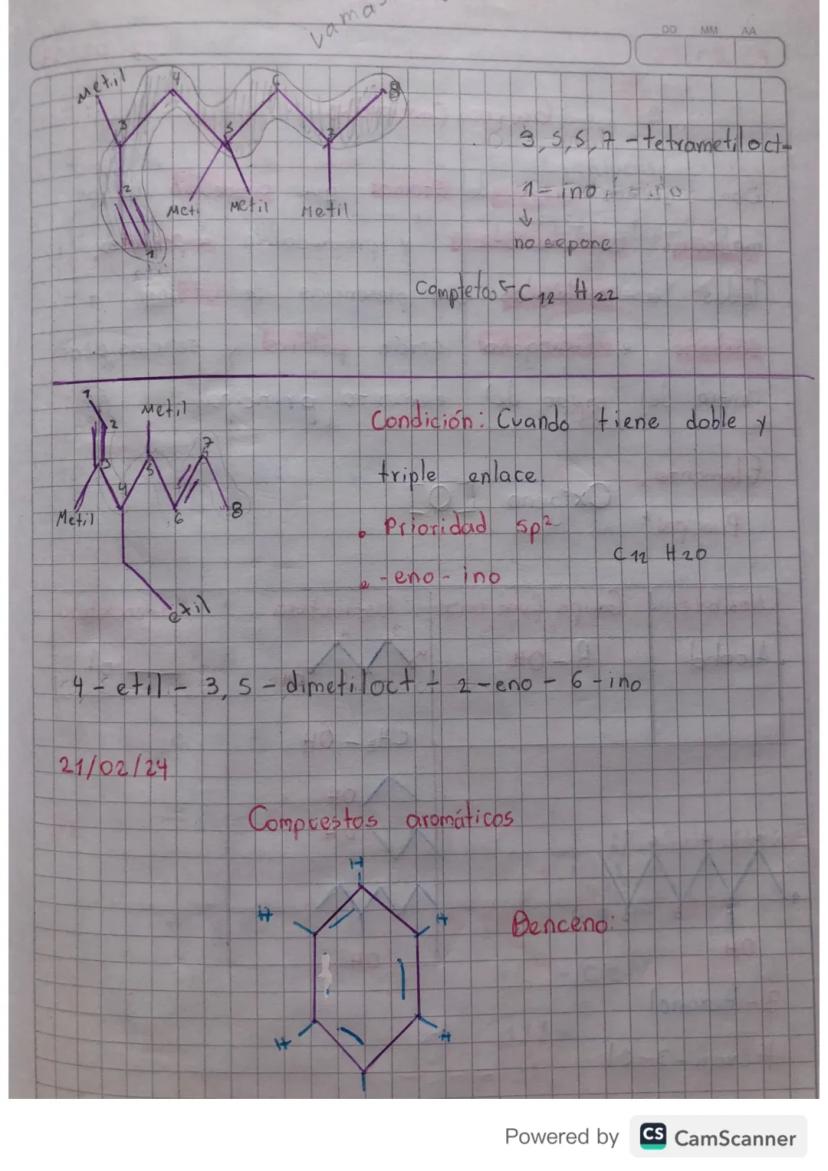 vamos
DD MM AA
Metil 4 6 8
3 5 7
3, 5, 5, 7 - tetrametiloct-
2
Met. Metil Metil
1 - ino
1
no se pone
Completos C12 H22
1
2 Metil
Condición: Cuando tiene doble y
3 5 7
triple enlace
Metil 4 6 8
• Prioridad sp²
C12 H20
• -eno - ino
etil
4 - etil - 3, 5 - dimetiloct - 2 - eno - 6 - ino
21/02/24
Compuestos aromáticos
H
H H
Benceno:
H H
Powered by CS CamScanner